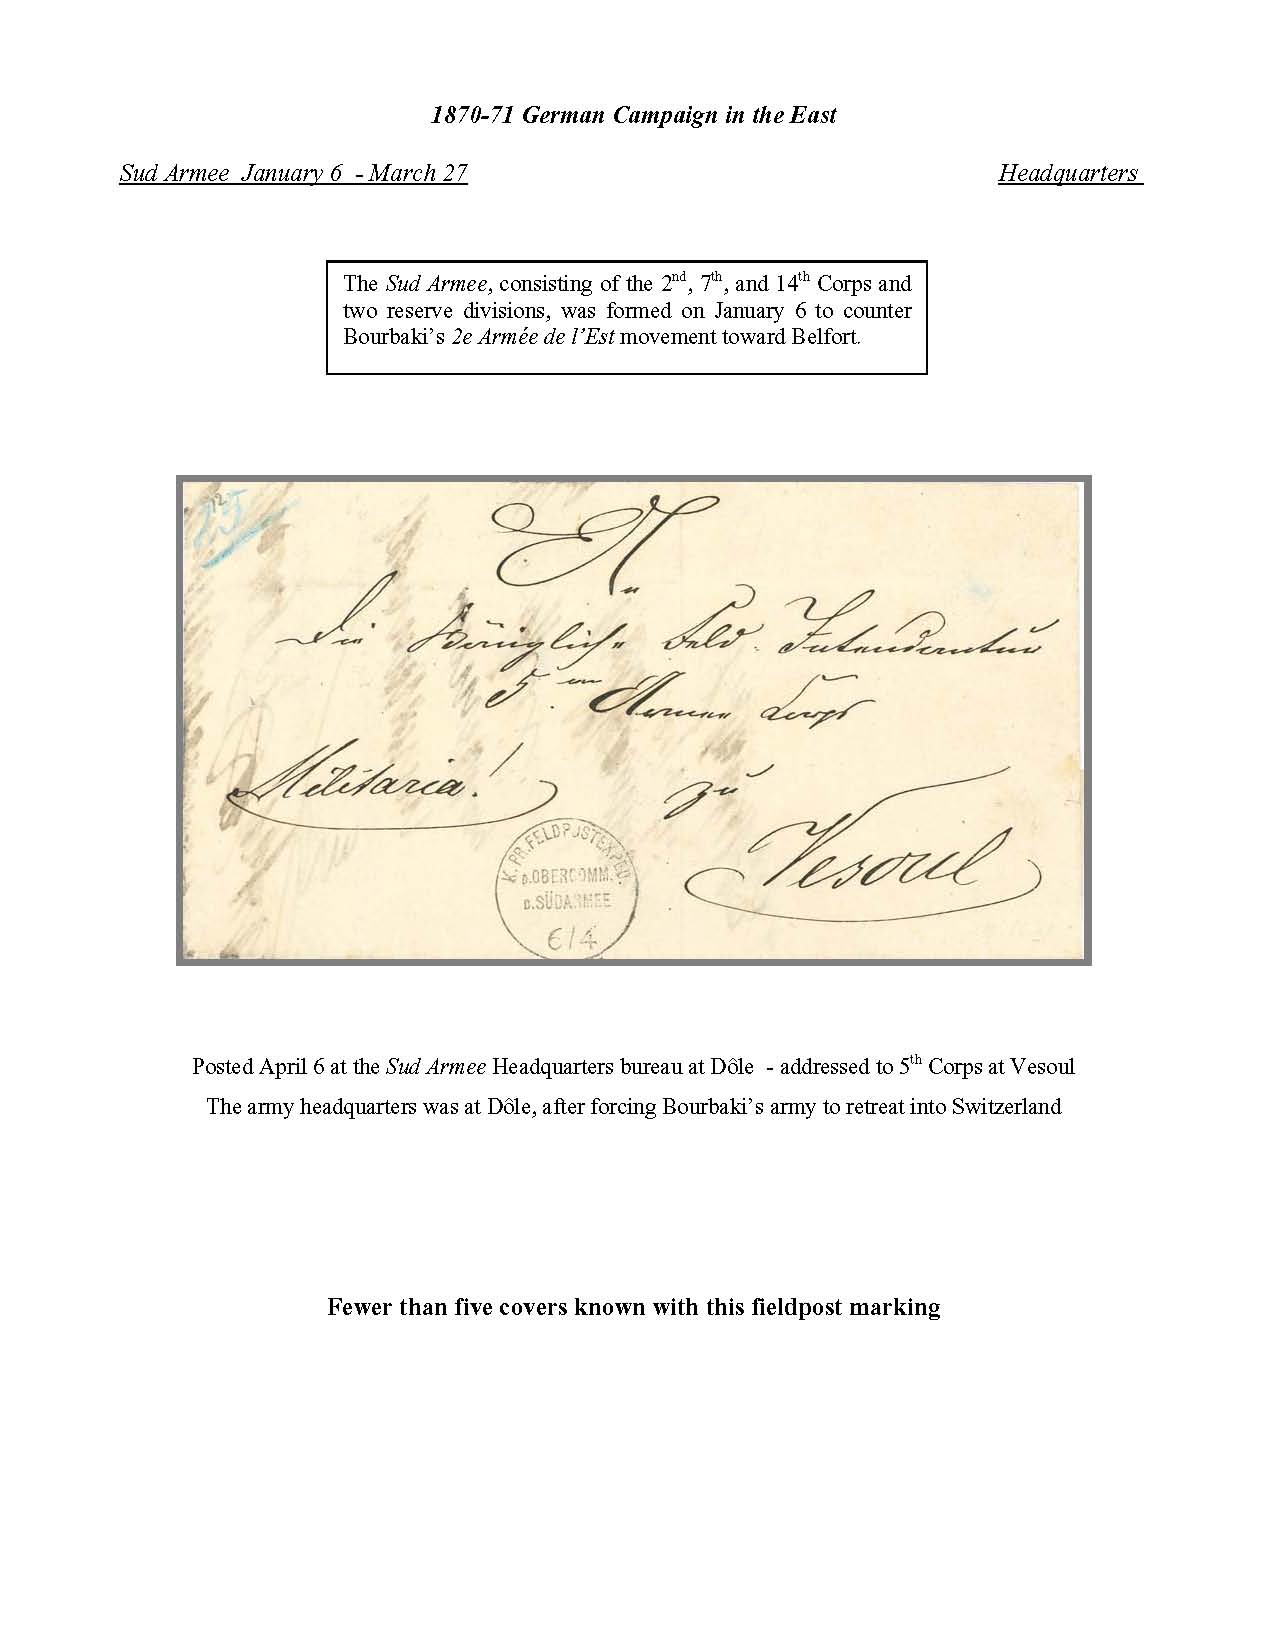 1870-71 German Campaign in the East
Sud Armee January 6 - March 27
Headquarters
The Sud Armee, consisting of the 2nd, 7th, and 14th Corps and
two reserve divisions, was formed on January 6 to counter
Bourbaki's 2e Armée de l'Est movement toward Belfort.
An
die Königliche Feld-Intendantur
5ten Armee Corps
Militaria!
zu
Vesoul
K. PR. FELDPOSTEXPED.
D. OBERCOMM.
D. SÜDARMEE
6/4
Posted April 6 at the Sud Armee Headquarters bureau at Dôle - addressed to 5th Corps at Vesoul
The army headquarters was at Dôle, after forcing Bourbaki's army to retreat into Switzerland
Fewer than five covers known with this fieldpost marking